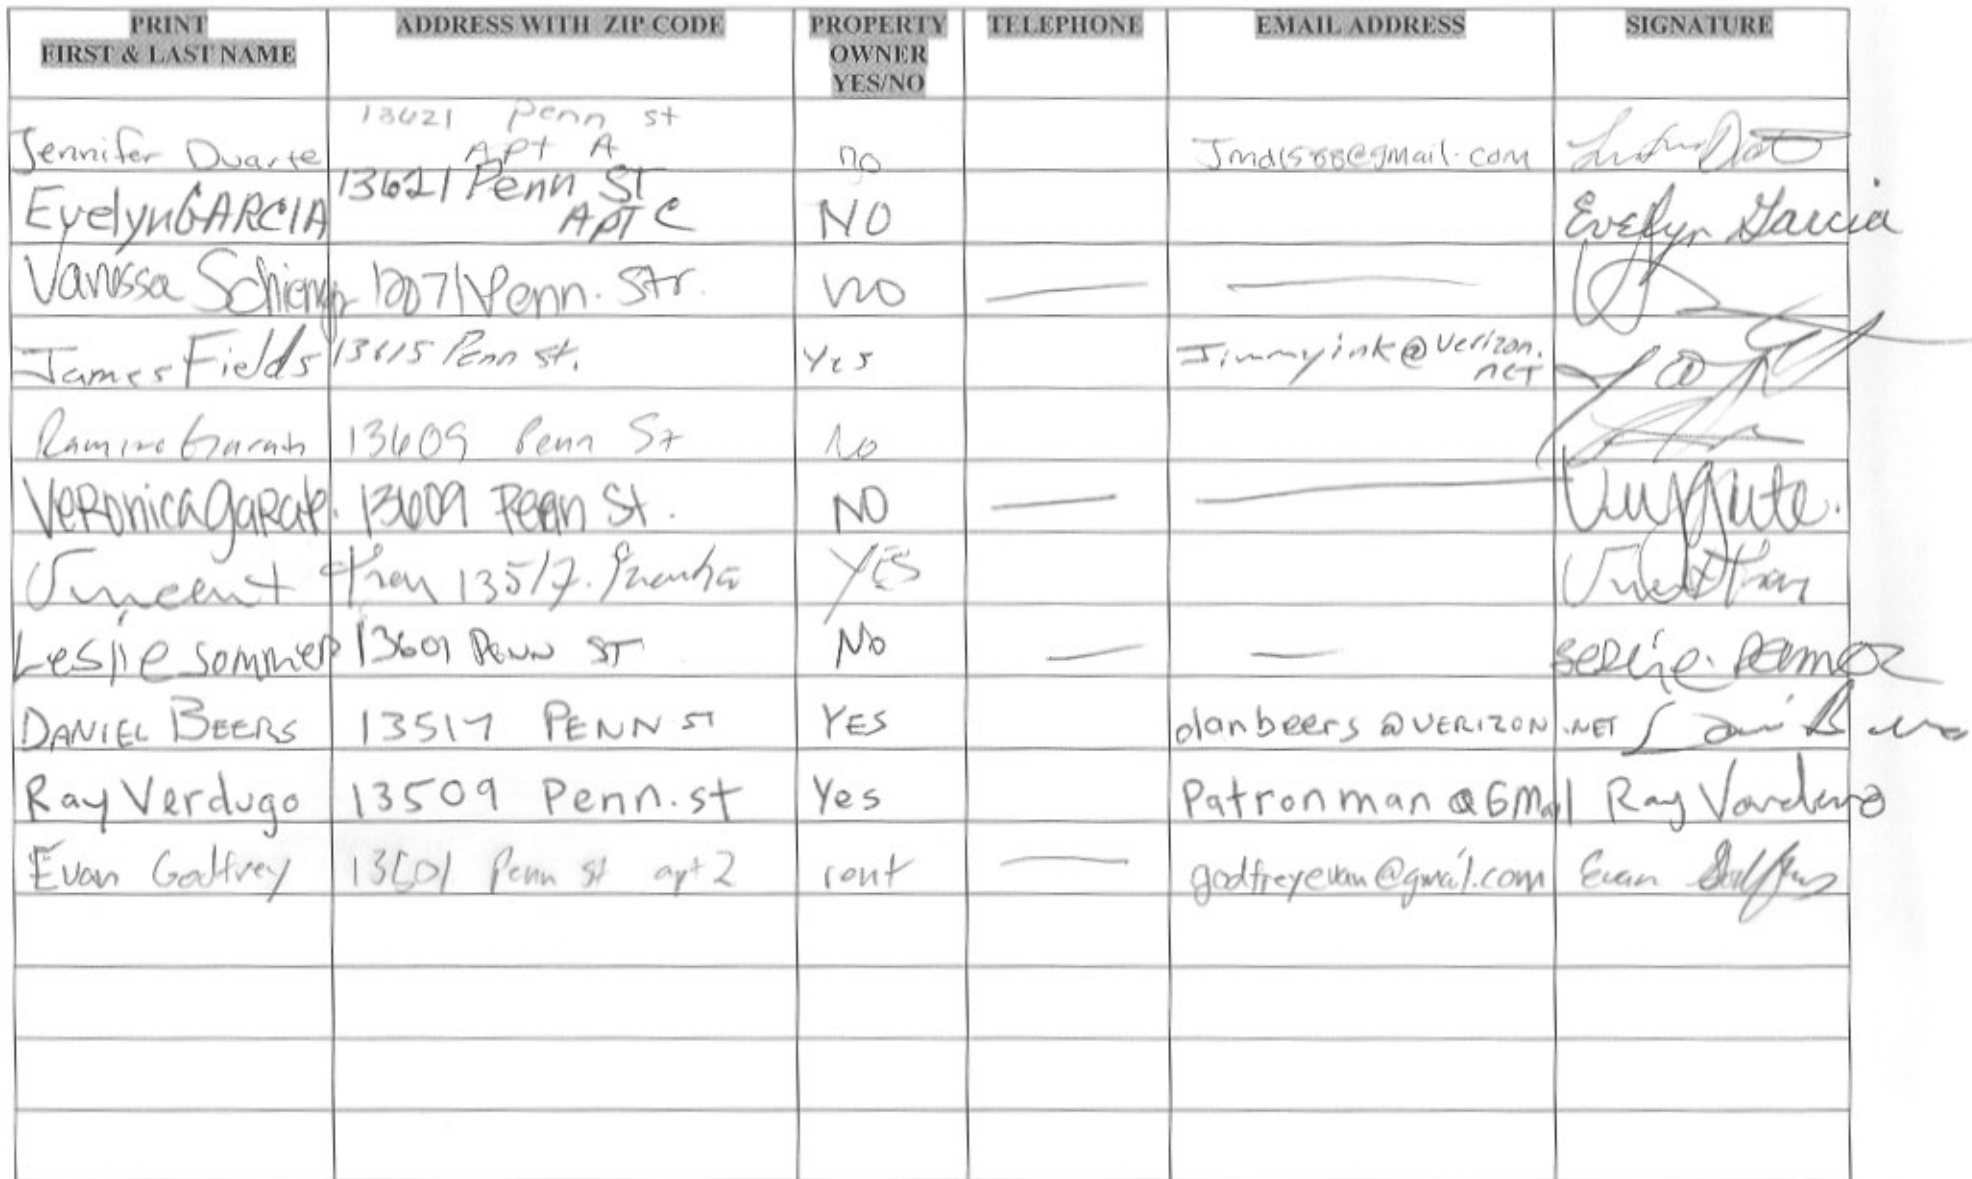 PRINT FIRST & LAST NAME ADDRESS WITH ZIP CODE PROPERTY OWNER YES/NO TELEPHONE EMAIL ADDRESS SIGNATURE
Jennifer Duarte 13621 Penn st Apt A no
Evelyn GARCIA 13621 Penn ST APT C NO Evelyn Garcia
Vanessa Penn. Str. NO
James Fields 13615 Penn St. Yes Jimmyink@verizon.net
13609 Penn St No
Veronica 13609 Penn St. NO
Vincent YES
Leslie sommer 13601 PENN ST No
DANIEL BEERS 13517 PENN ST YES danbeers@VERIZON.NET
Ray Verdugo 13509 Penn. st Yes Patronman@GMail Ray
Evan Godfrey Penn st apt 2 rent godfreyevan@gmail.com Evan